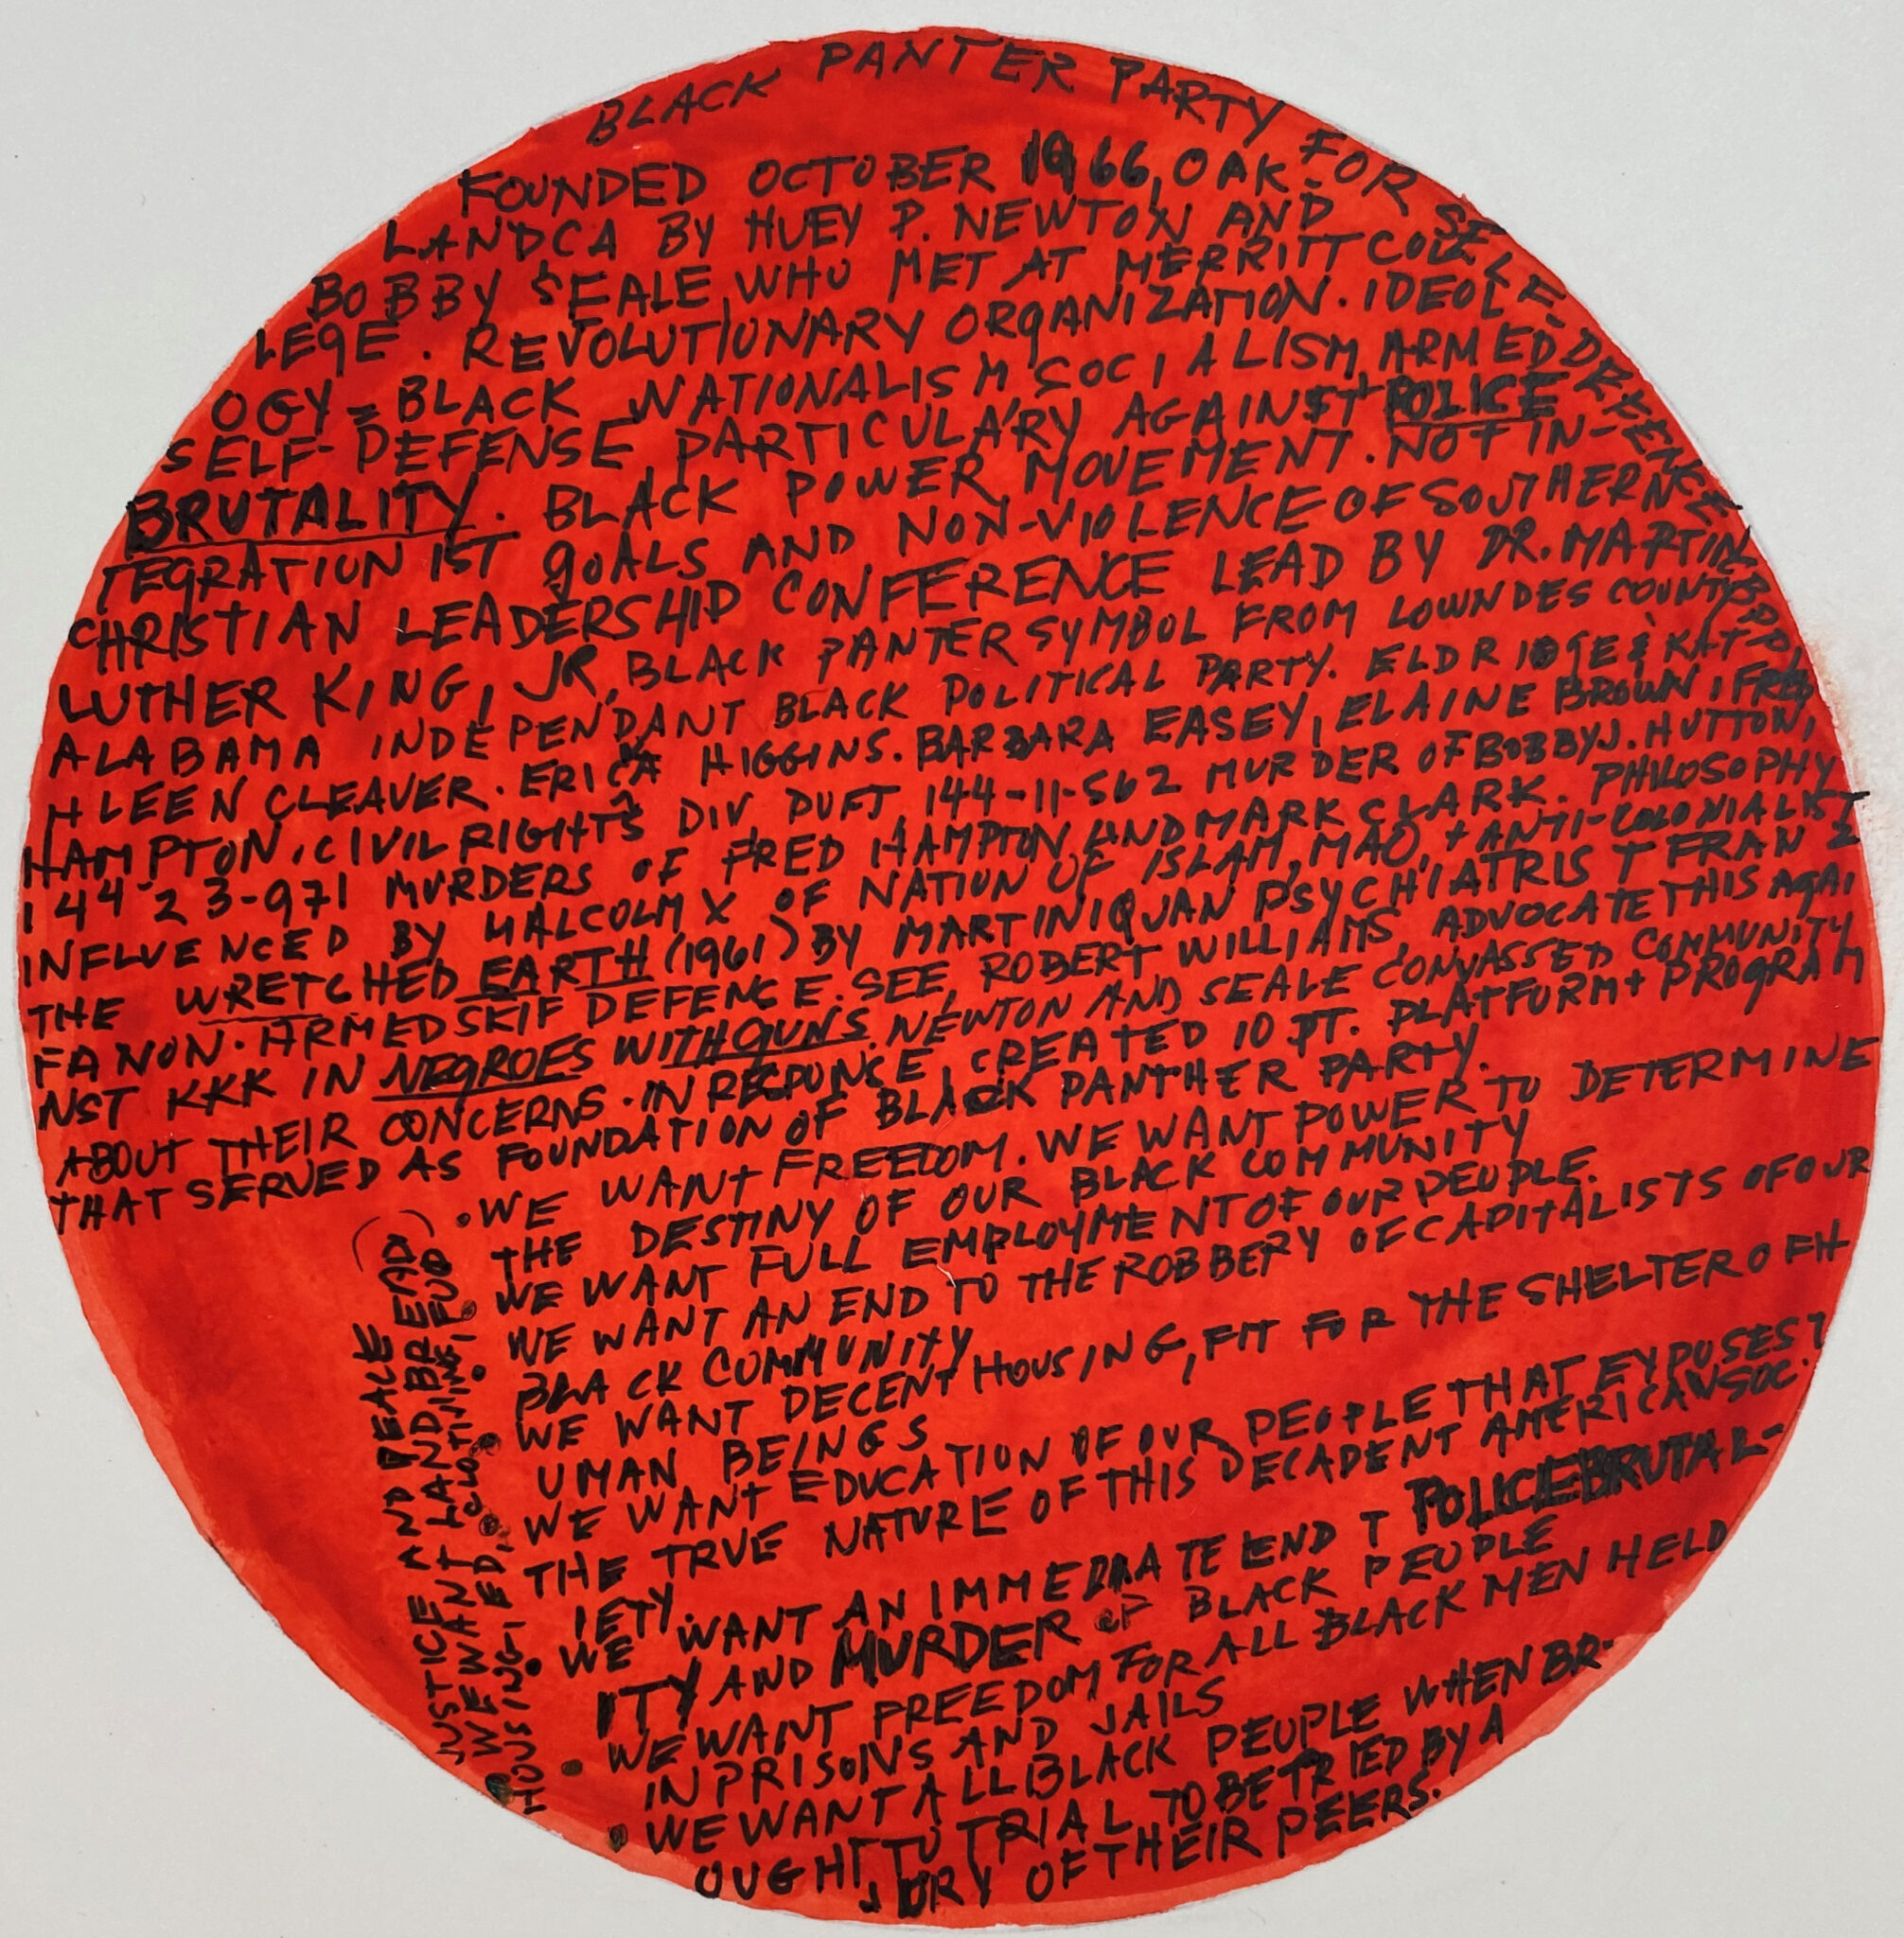 BLACK PANTER PARTY FOR SELF-DREFENCE
FOUNDED OCTOBER 1966, OAK-
LANDCA BY HUEY P. NEWTON AND
BOBBY SEALE, WHO MET AT MERRITT COLL
LEGE. REVOLUTIONARY ORGANIZATION. IDEOL
OGY = BLACK NATIONALISM, SOCIALISM ARMED
SELF-DEFENSE, PARTICULARY AGAINST POLICE
BRUTALITY. BLACK POWER MOVEMENT. NOT IN-
TEGRATIONIST GOALS AND NON-VIOLENCE OF SOUTHERN
CHRISTIAN LEADERSHIP CONFERENCE LEAD BY DR. MARTIN
LUTHER KING, JR. BLACK PANTER SYMBOL FROM LOWNDES COUNTY
ALABAMA INDEPENDANT BLACK POLITICAL PARTY. ELDRIDGE & KAT
HLEEN CLEAVER. ERICA HIGGINS. BARBARA EASEY, ELAINE BROWN, FRED
HAMPTON. CIVIL RIGHTS DIV DUFT 144-11-562 MURDER OF BOBBY J. HUTTON,
144-23-971 MURDERS OF FRED HAMPTON AND MARK CLARK. PHILOSOPHY
INFLUENCED BY MALCOLM X OF NATION OF ISLAM, MAO, + ANTI-COLONIALIST
THE WRETCHED EARTH (1961) BY MARTINIQUAN PSYCHIATRIST FRANZ
FANON. ARMED SKIF DEFENCE. SEE, ROBERT WILLIAMS, ADVOCATE THIS AGAI
NST KKK IN NEGROES WITH GUNS. NEWTON AND SEALE CONVASSED COMMUNITY
ABOUT THEIR CONCERNS. IN RESPONCE, CREATED 10 PT. PLATFORM + PROGRAM
THAT SERVED AS FOUNDATION OF BLACK PANTHER PARTY.
• WE WANT FREEDOM. WE WANT POWER TO DETERMINE
THE DESTINY OF OUR BLACK COMMUNITY
• WE WANT FULL EMPLOYMENT OF OUR PEOPLE.
• WE WANT AN END TO THE ROBBERY OF CAPITALISTS OF OUR
BLACK COMMUNITY
• WE WANT DECENT HOUSING, FIT FOR THE SHELTER OF H
UMAN BEINGS
• WE WANT EDUCATION OF OUR PEOPLE THAT EXPOSES T
THE TRUE NATURE OF THIS DECADENT AMERICAN SOC.
IETY.
• WE WANT AN IMMEDIATE END T POLICE BRUTAL-
ITY AND MURDER OF BLACK PEOPLE
• WE WANT FREEDOM FOR ALL BLACK MEN HELD
IN PRISONS AND JAILS
• WE WANT ALL BLACK PEOPLE WHEN BR-
OUGHT TO TRIAL TO BE TRIED BY A
JURY OF THEIR PEERS.
• WE WANT LAND, BREAD,
HOUSING, ED., CLOTHING,
JUSTICE AND PEACE